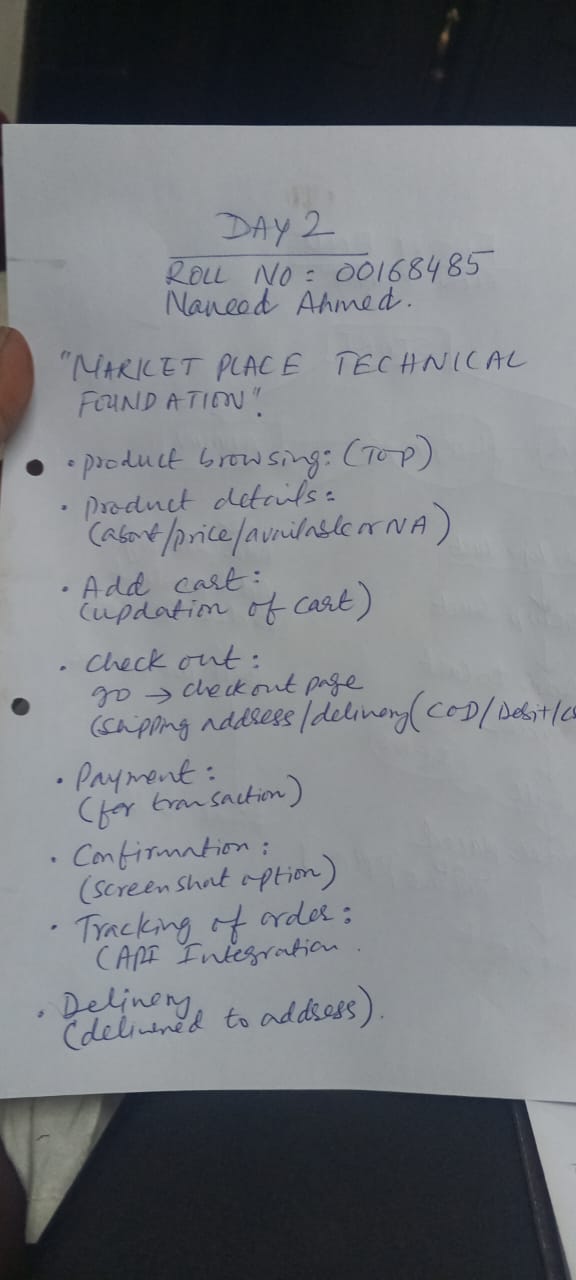 DAY 2
ROLL NO: 00168485
Naveed Ahmed.
"MARKET PLACE TECHNICAL
FOUNDATION".
• product browsing: (TOP)
• product details:
(about/price/available or NA)
• Add cart:
(updation of cart)
• check out:
go → checkout page
(shipping address/delivery (COD/Debit/
• Payment:
(for transaction)
• Confirmation:
(screen shot option)
• Tracking of order:
(API Integration.
• Delivery
(delivered to address).